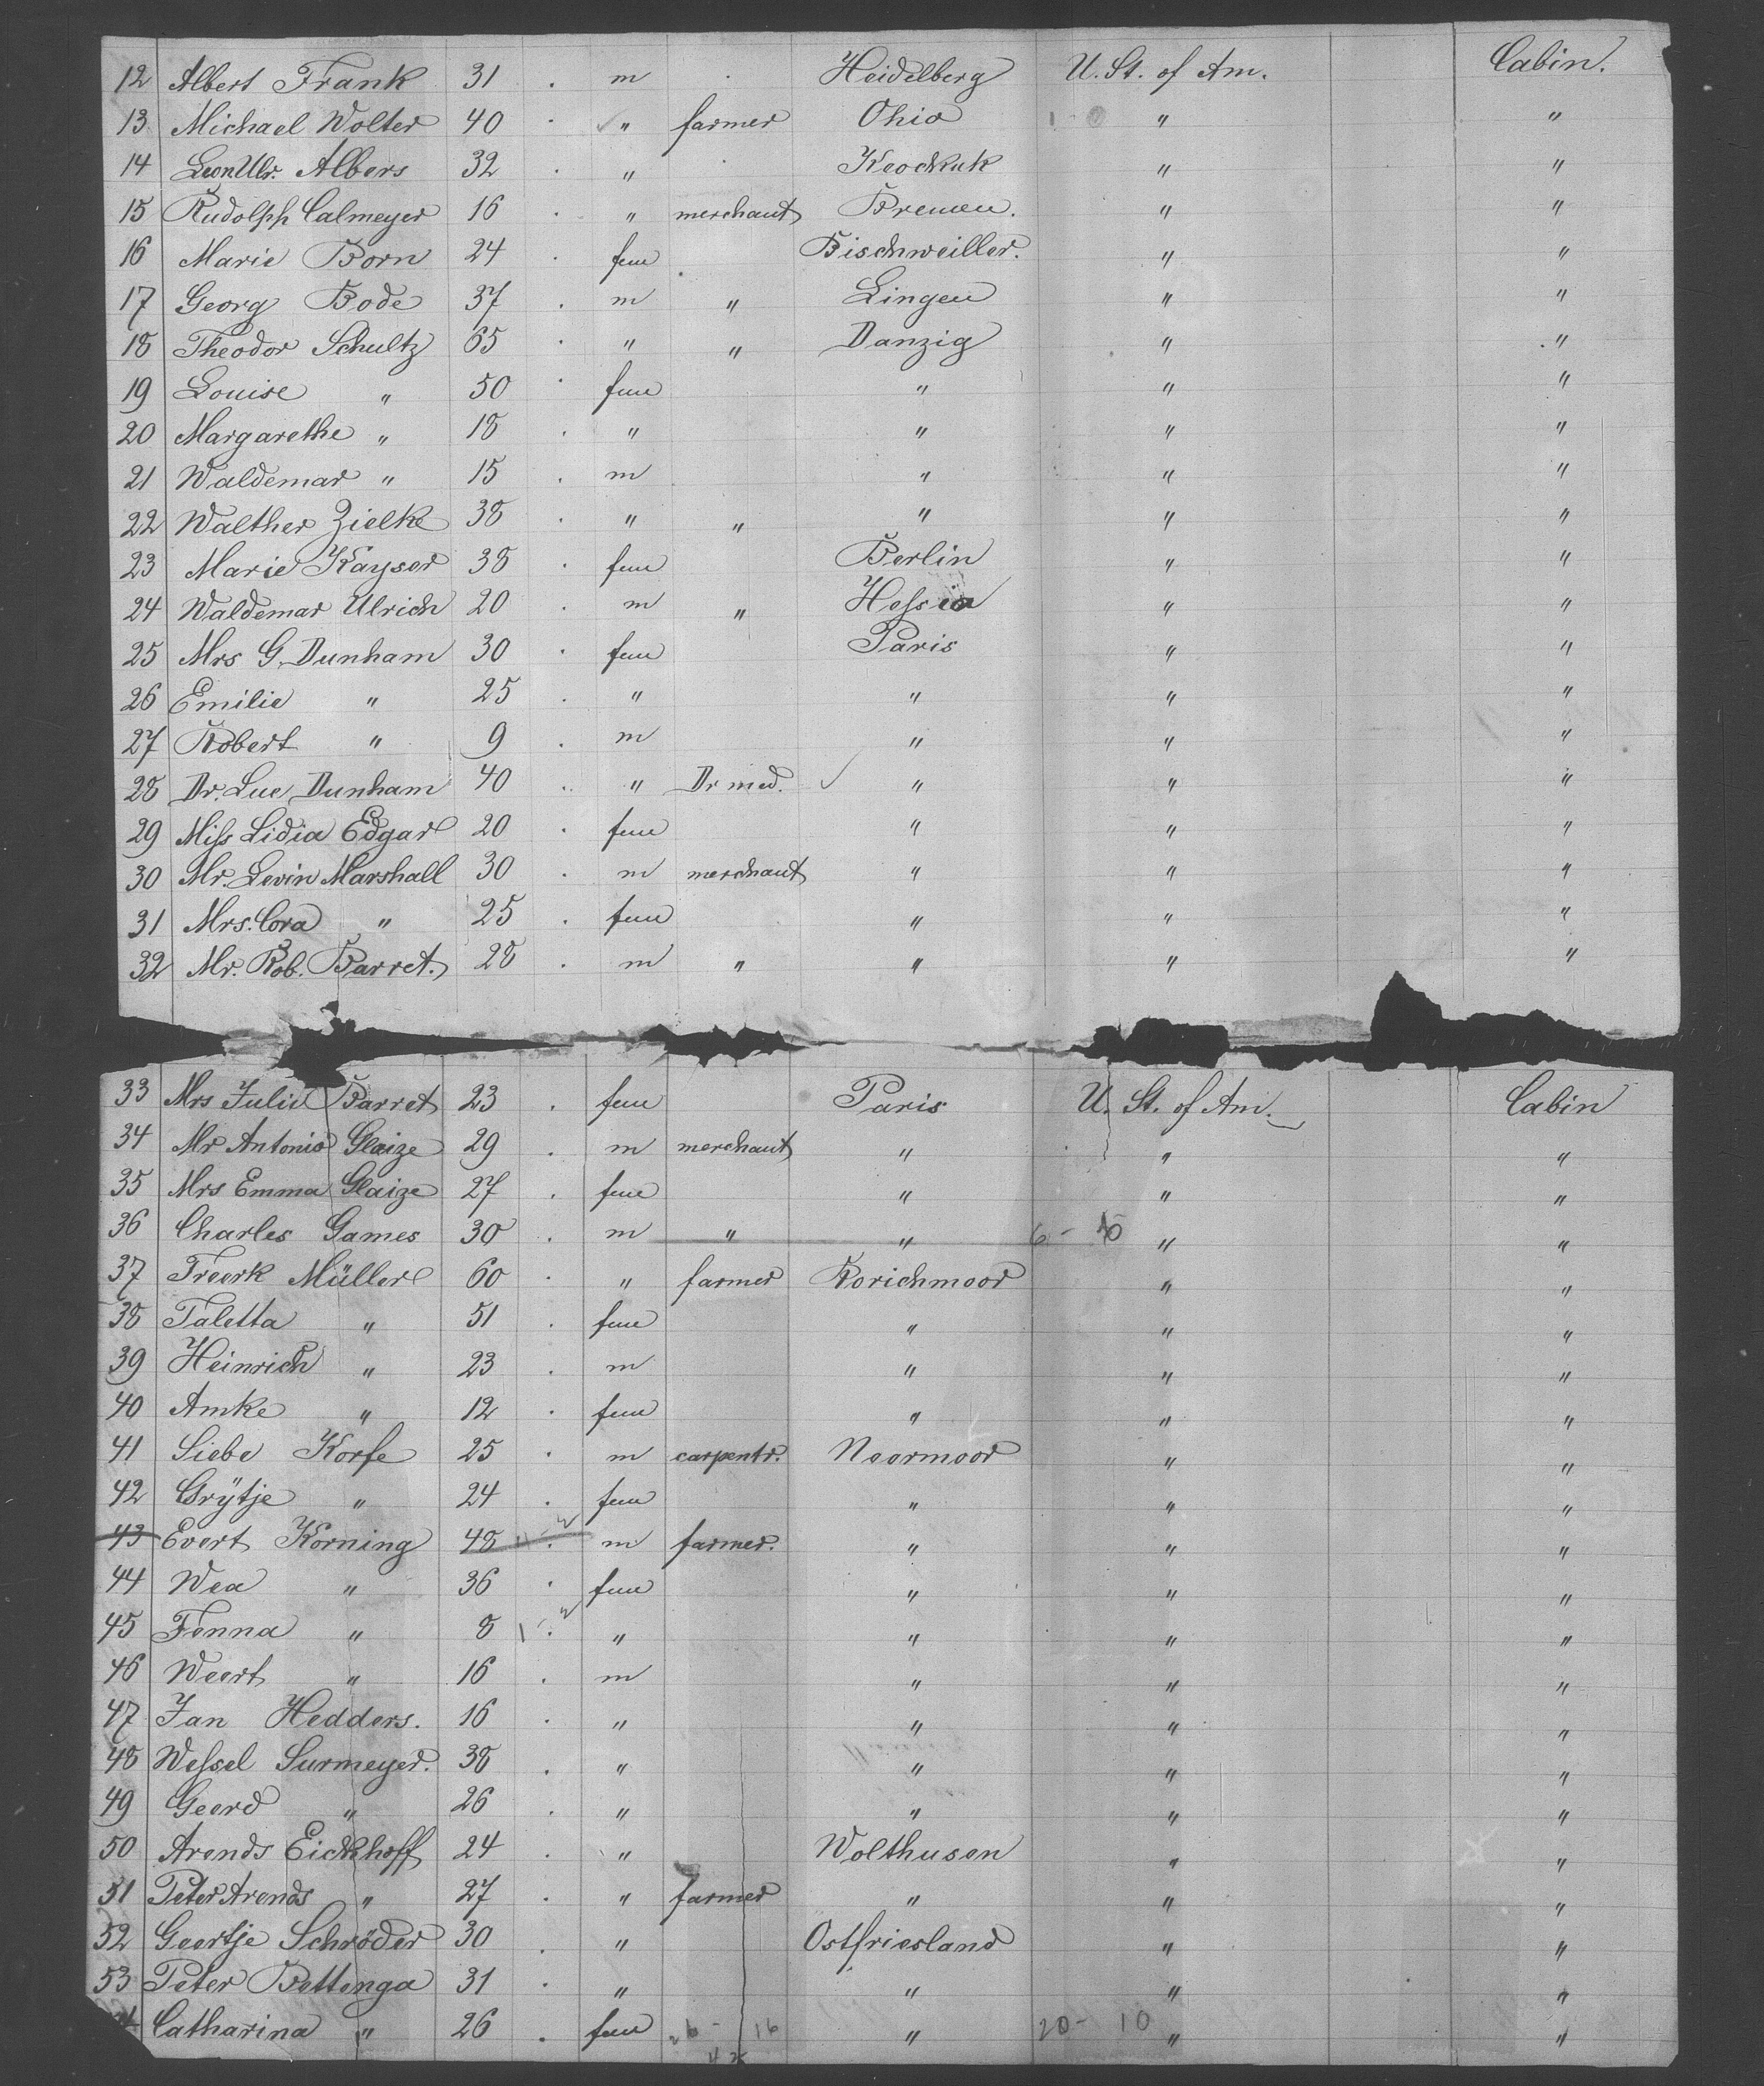 12 Albert Frank 31 . m . Heidelberg U. St. of Am. Cabin.
13 Michael Wolter 40 . " farmer Ohio " "
14 Leon Ulr. Albers 32 . " . Keockuk " "
15 Rudolph Calmeyer 16 . " merchant Bremen. " "
16 Marie Born 24 . fem . Bischweiller. " "
17 Georg Bode 37 . m " Lingen " "
18 Theodor Schultz 65 . " " Danzig " "
19 Louise " 50 . fem " " "
20 Margarethe " 18 . " " " "
21 Waldemar " 15 . m " " "
22 Walther Zielke 38 . " " " " "
23 Marie Kayser 38 . fem Berlin " "
24 Waldemar Ulrich 20 . m " Hessen " "
25 Mrs G. Dunham 30 . fem Paris " "
26 Emilie " 25 . " " " "
27 Robert " 9 . m " " "
28 Dr. Lue Dunham 40 . " Dr med. " " "
29 Miss Lidia Edgar 20 . fem " " "
30 Mr. Levin Marshall 30 . m merchant " " "
31 Mrs. Cora " 25 . fem " " "
32 Mr. Rob. Barret. 28 . m " " " "
33 Mrs Julie Barret 23 . fem Paris U. St. of Am. Cabin
34 Mr Antonio Glaize 29 . m merchant " " "
35 Mrs Emma Glaize 27 . fem " " "
36 Charles Games 30 . m " " 6 - 10 " "
37 Freerk Müller 60 . " farmer Rorichmoor " "
38 Taletta " 51 . fem " " "
39 Heinrich " 23 . m " " "
40 Amke " 12 . fem " " "
41 Siebe Korfe 25 . m carpentr. Neermoor " "
42 Grytje " 24 . fem " " "
43 Evert Korning 48 . m farmer. " " "
44 Wea " 36 . fem " " "
45 Fenna " 8 . " " " "
46 Weert " 16 . m " " "
47 Jan Hedders. 16 . " " " "
48 Wessel Surmeyer. 38 . " " " "
49 Geerd " 26 . " " " "
50 Arends Eickhoff 24 . " Wolthusen " "
51 Peter Arends " 27 . " farmer " " "
52 Geertje Schröder 30 . " Ostfriesland " "
53 Peter Bettenga 31 . " " " "
Catharina " 26 . fem 26 - 16 " 20 - 10 " "